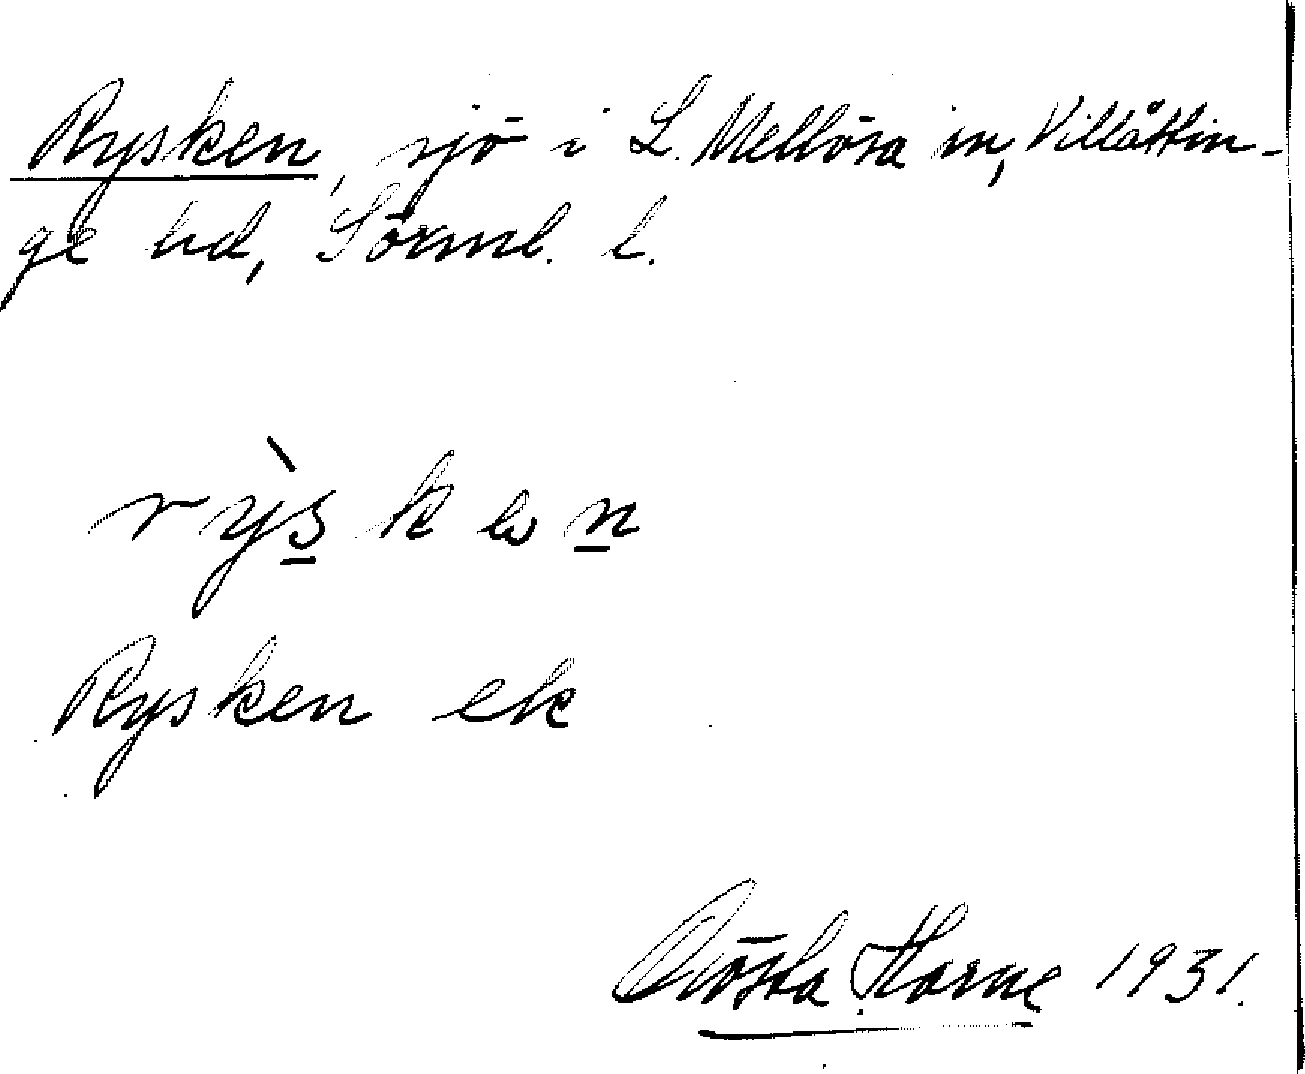 Rysken, sjö i L. Mellösa sn, Villåttin-
ge hd, Sörml. l.
rỳsken
Rysken ek
Gösta Horne 1931.